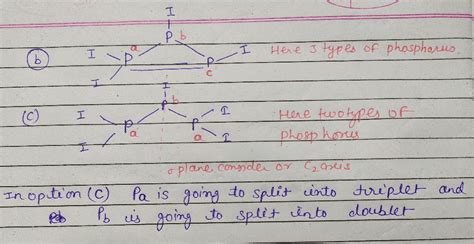 I
(b) I P a P b P c I Here 3 types of phosphorus.
I
I
(C) I P a P b P a I Here two types of
I I phosphorus
σ plane consider or C2 axis
In option (C) Pa is going to split into triplet and
Pb is going to split into doublet